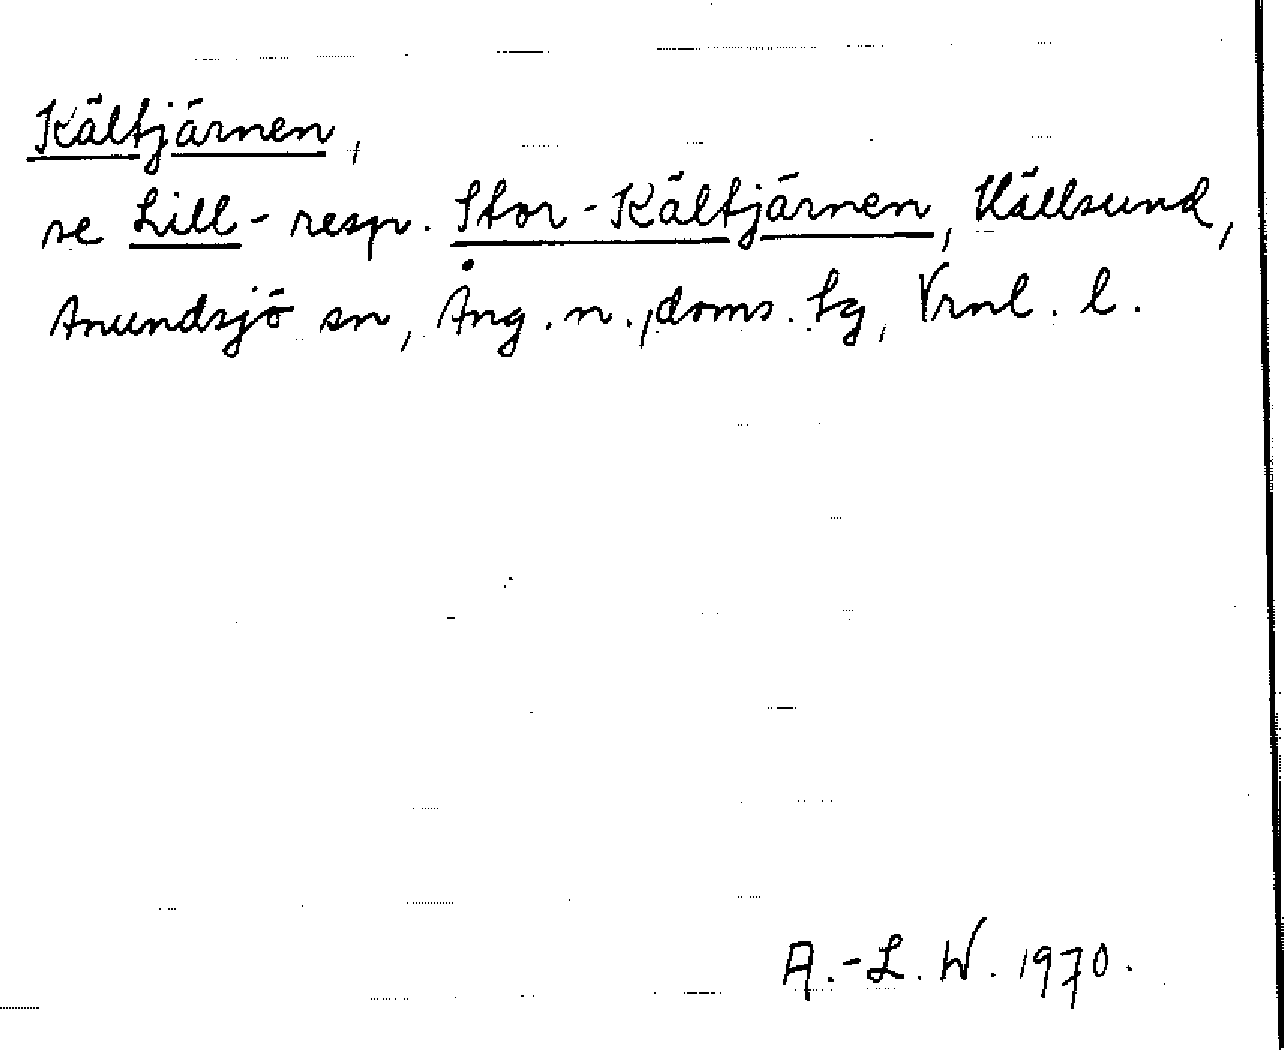 Kältjärnen,
se Lill- resp. Stor-Kältjärnen, Hällsund,
Anundsjö sn, Ång. n., doms. tg, Vrnl. l.
A.-L. W. 1970.